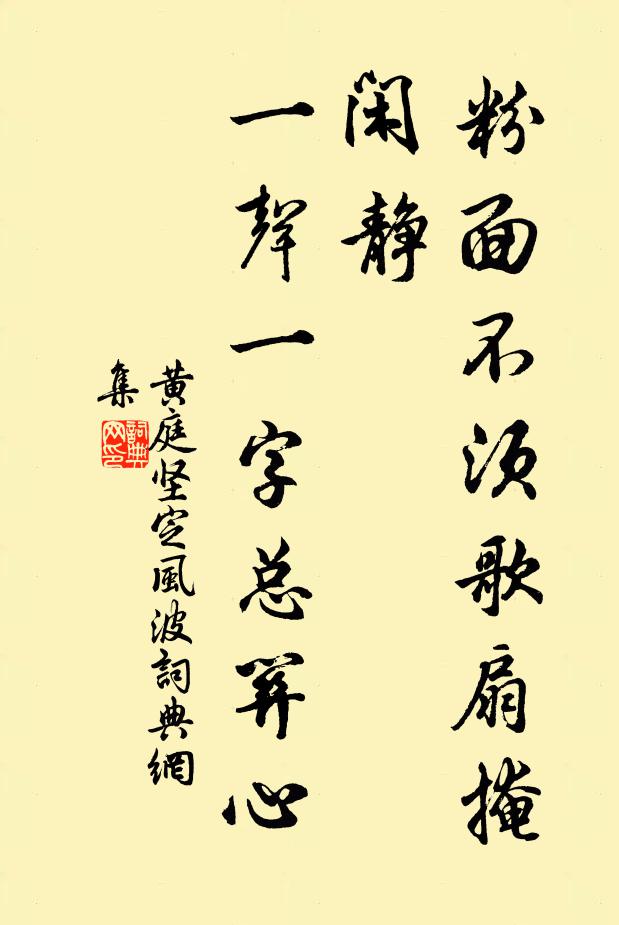 粉面不须歌扇掩
闲静
一声一字总关心
黄庭坚定風波詞典網
集
詞典
网印